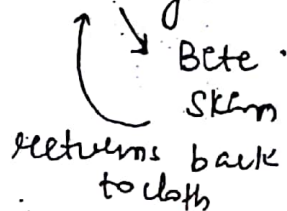 Bete
Skin
returns back
to cloth